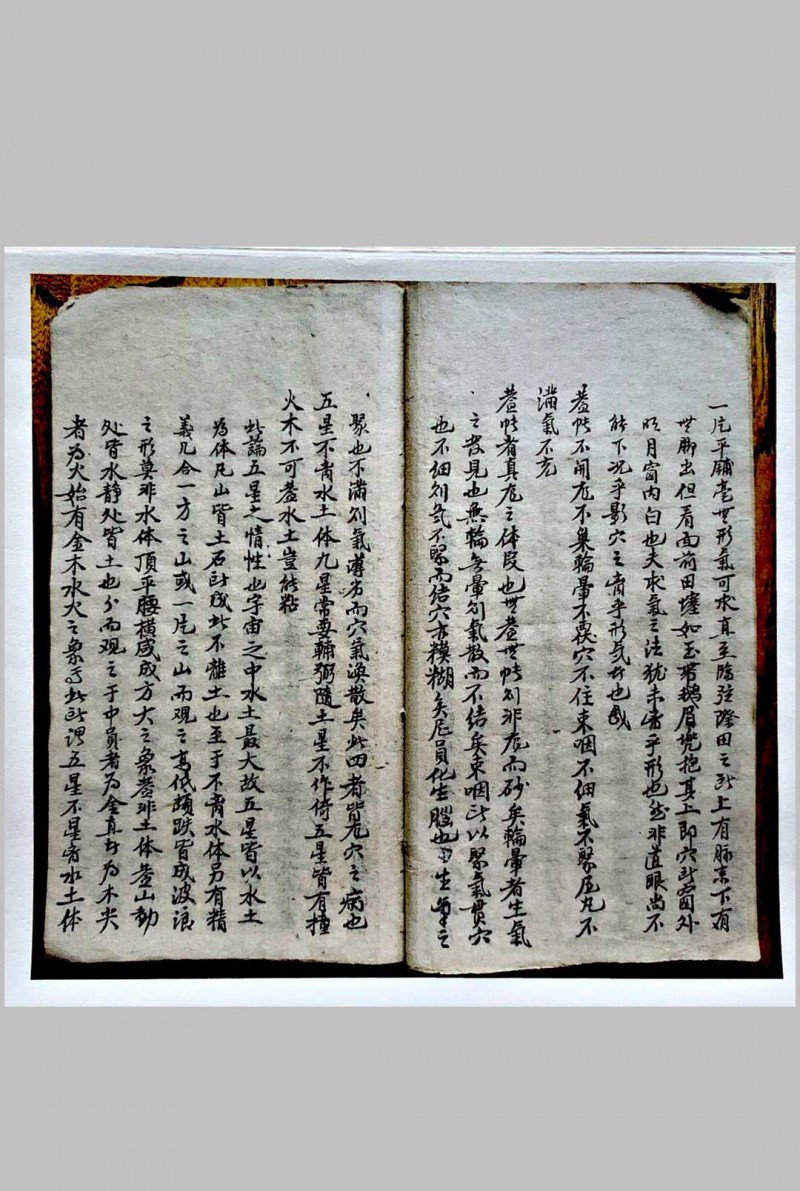 一片平鋪毫世形氣可求直至臨弦際田之所上有脉來下有
世脚出但看面前田墐如玉帶鵝眉兜抱其上即穴所窗外
明月窗内白也夫求氣之法犹未离乎形也然非道眼尚不
能下况乎影穴之离乎形気者也
葢帐不開龙不巢輪暈不覆穴不住束咽不细氣不聚尾丸不
满氣不充
葢帐者真龙之体段也世葢世帐则非龙而砂矣輪暈者生氣
之發見也無輪無暈则氣散而不结矣束咽所以聚氣貫穴
也不细则気不聚而结穴亦糢糊矣尾員化生腦也生氣之
聚也不满则氣薄劣而穴氣渙散矣此四者皆龙穴之病也
五星不离水土体九星常要輔弼隨土星不作倚五星皆有撞
火木不可葢水土豈能粘
此論五星之情性也宇宙之中水土最大故五星皆以水土
为体凡山皆土石所成此不離土也至于不离水体另有精
義凡合一方之山或一片之山而观之高低頓跌皆成波浪
之形莫非水体頂平腰横成成方大之象者非土体葢山動
处皆水静处皆土也分而观之于中員者为金直者为木尖
者为火始有金木水火之象焉此所谓五星不离水土体